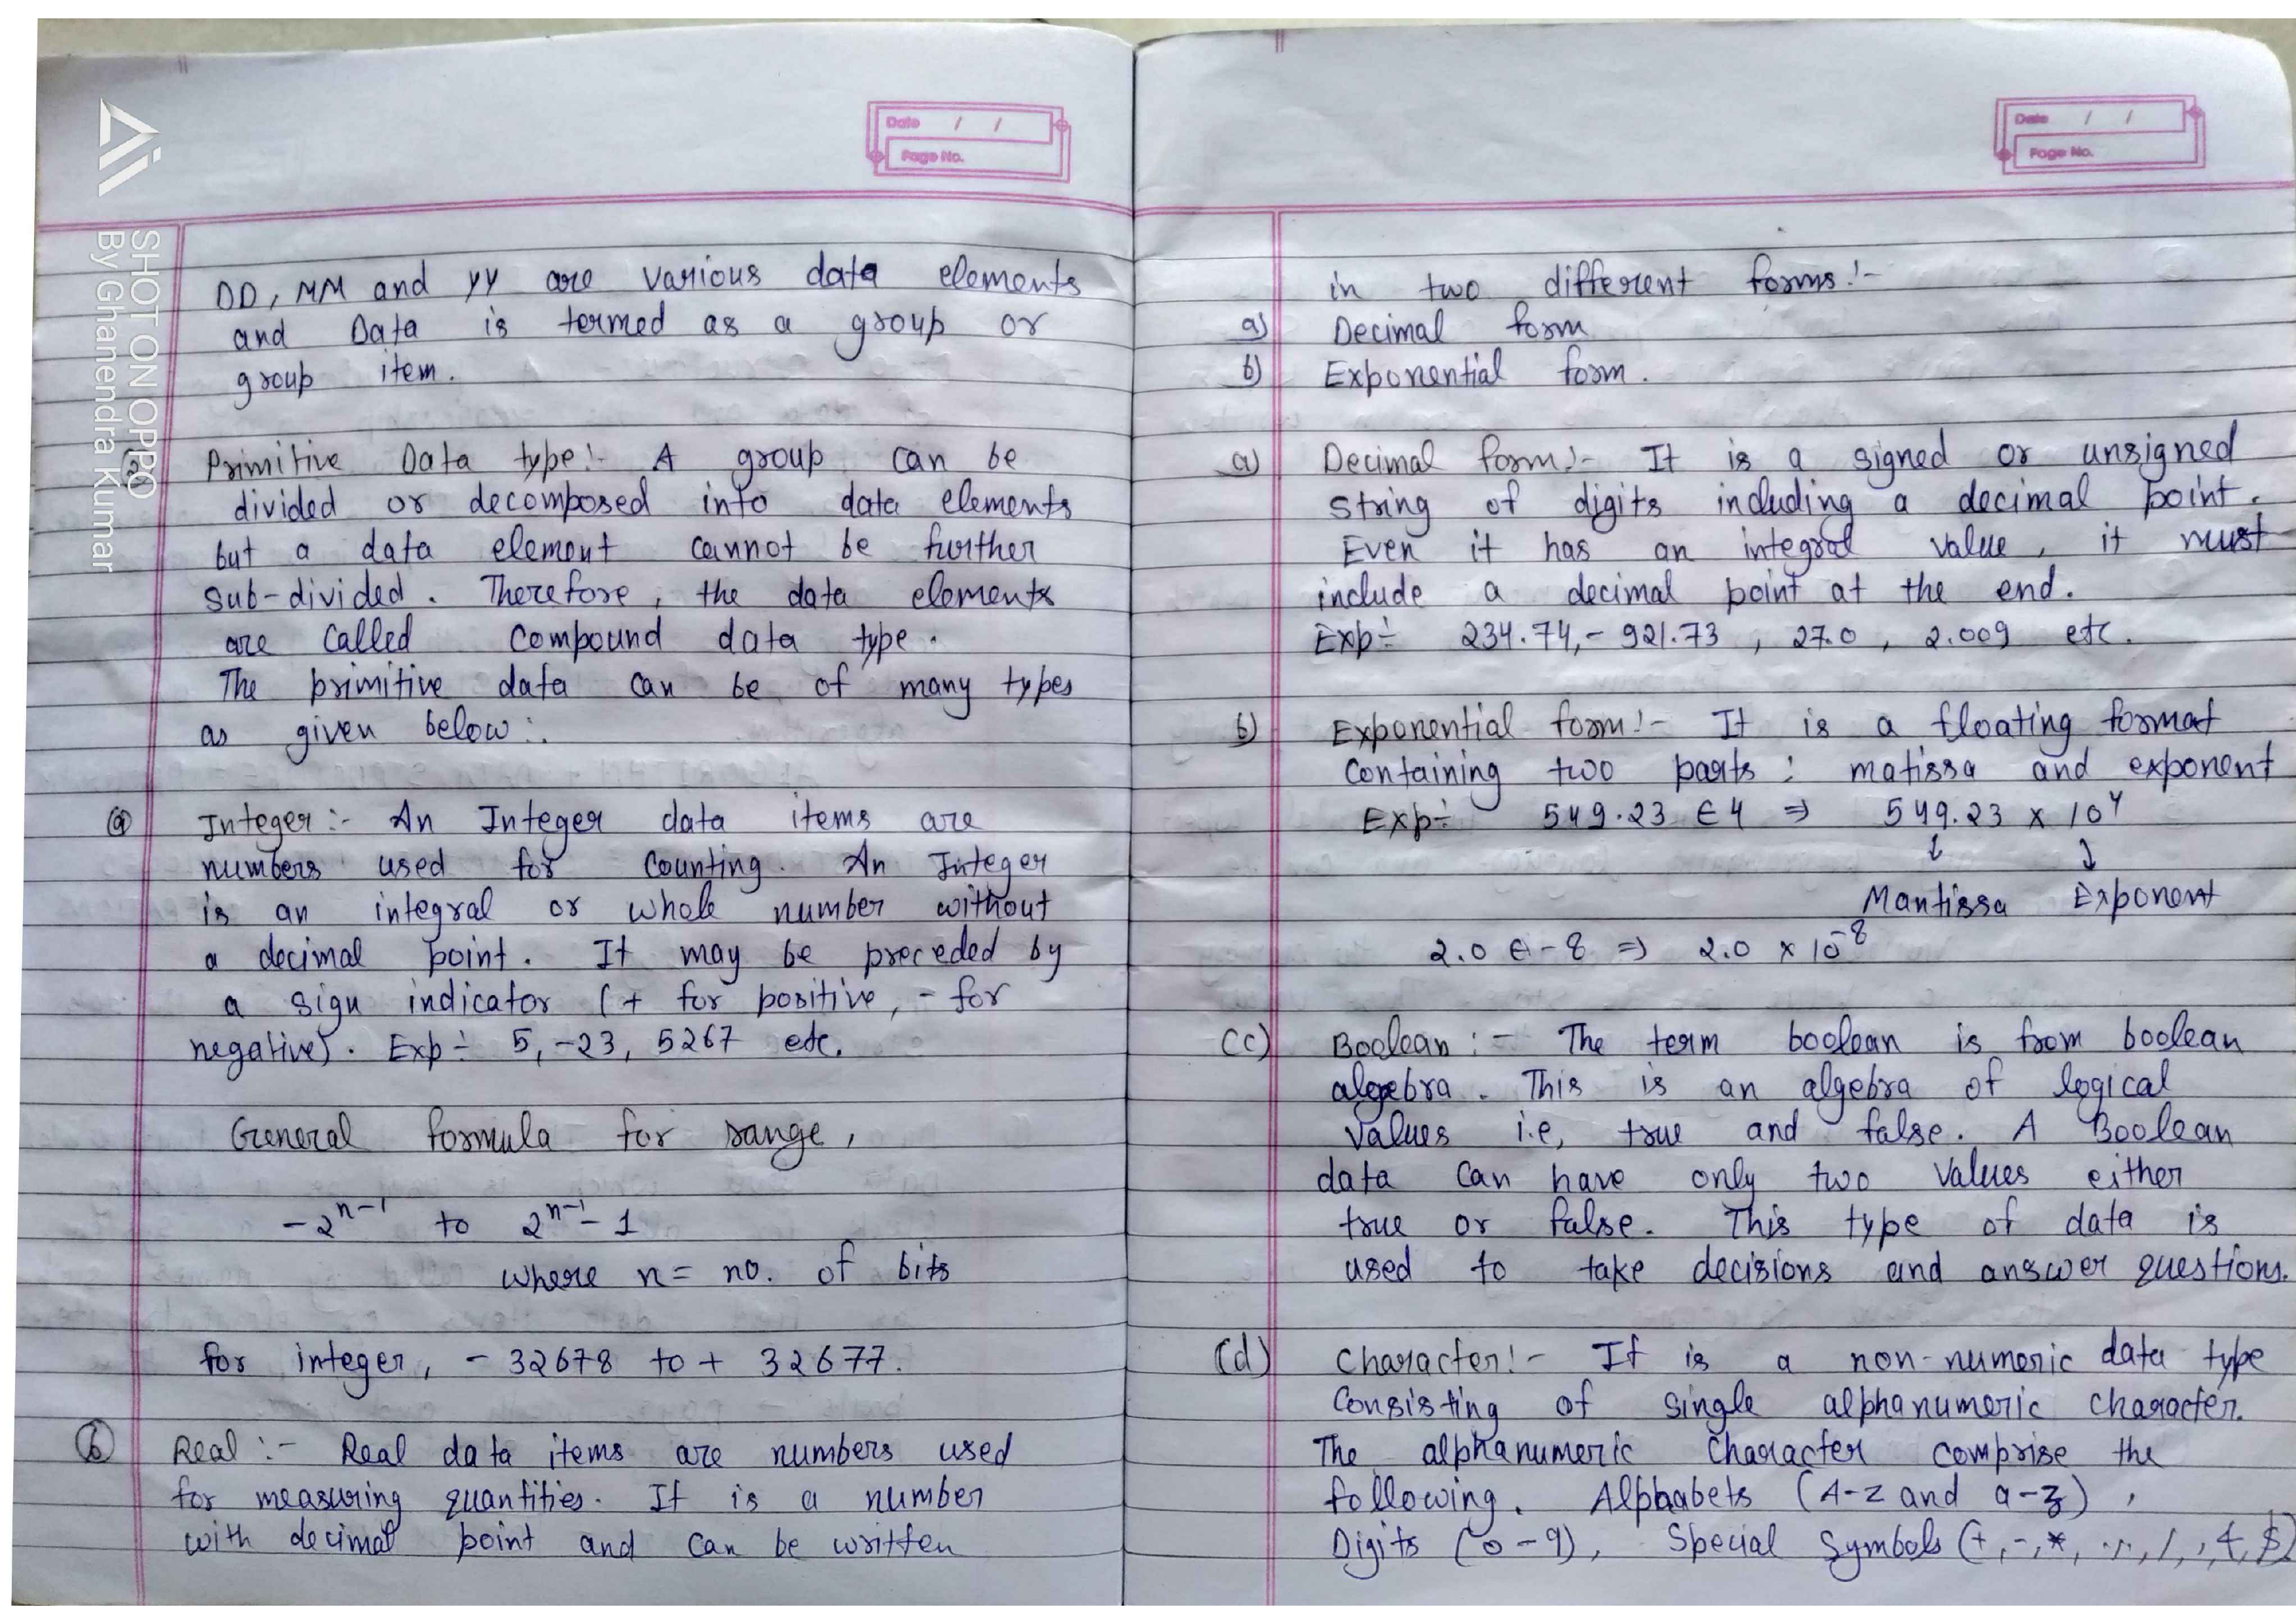 Date / /
Page No.
DD, MM and YY are various data elements
and Data is termed as a group or
group item.
Primitive Data type:- A group can be
divided or decomposed into data elements
but a data element cannot be further
sub-divided. Therefore, the data elements
are called compound data type.
The primitive data can be of many types
as given below:.
(a) Integer:- An Integer data items are
numbers used for counting. An Integer
is an integral or whole number without
a decimal point. It may be preceded by
a sign indicator (+ for positive, - for
negative). Exp÷ 5, -23, 5267 etc.
General formula for range,
-2^n-1 to 2^n-1 - 1
where n = no. of bits
for integer, - 32678 to + 32677.
(b) Real:- Real data items are numbers used
for measuring quantities. It is a number
with decimal point and can be written
Date / /
Page No.
in two different forms:-
a) Decimal form
b) Exponential form.
a) Decimal form:- It is a signed or unsigned
string of digits including a decimal point.
Even it has an integral value, it must
include a decimal point at the end.
Exp÷ 234.74, - 921.73, 27.0, 2.009 etc.
b) Exponential form:- It is a floating format
containing two parts: matissa and exponent
Exp÷ 549.23 E4 ⇒ 549.23 × 10^4
↓ ↓
Mantissa Exponent
2.0 E-8 ⇒ 2.0 × 10^-8
(c) Boolean:- The term boolean is from boolean
algebra. This is an algebra of logical
values i.e, true and false. A Boolean
data can have only two values either
true or false. This type of data is
used to take decisions and answer questions.
(d) Character:- It is a non-numeric data type
consisting of single alphanumeric character.
The alphanumeric character comprise the
following. Alphabets (A-Z and a-z),
Digits (0-9), Special Symbols (+, -, *,
SHOT ON OPPO
By Ghanendra Kumar